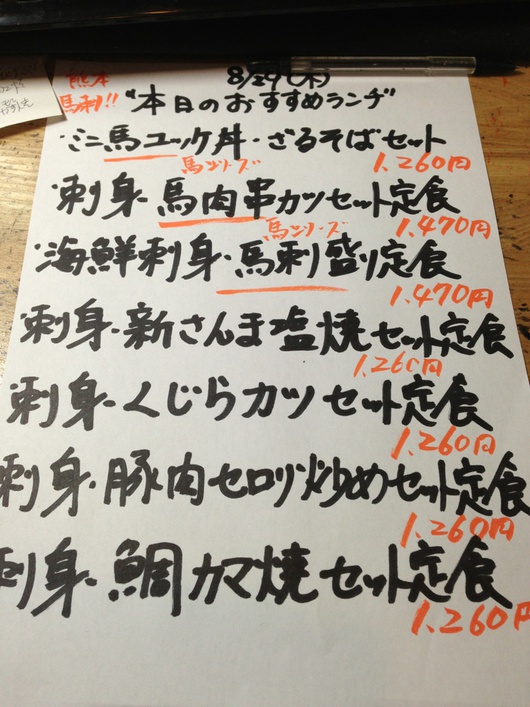 熊本
馬刺!!
8/29(木)
"本日のおすすめランチ"
・ミニ馬ユッケ丼・ざるそばセット
馬シリーズ
1.260円
・刺身・馬肉串カツセット定食
馬シリーズ
1.470円
・海鮮刺身・馬刺盛り定食
1.470円
・刺身・新さんま塩焼セット定食
1.260円
刺身・くじらカツセット定食
1.260円
刺身・豚肉セロリ炒めセット定食
1.260円
刺身・鯛カマ焼セット定食
1.260円